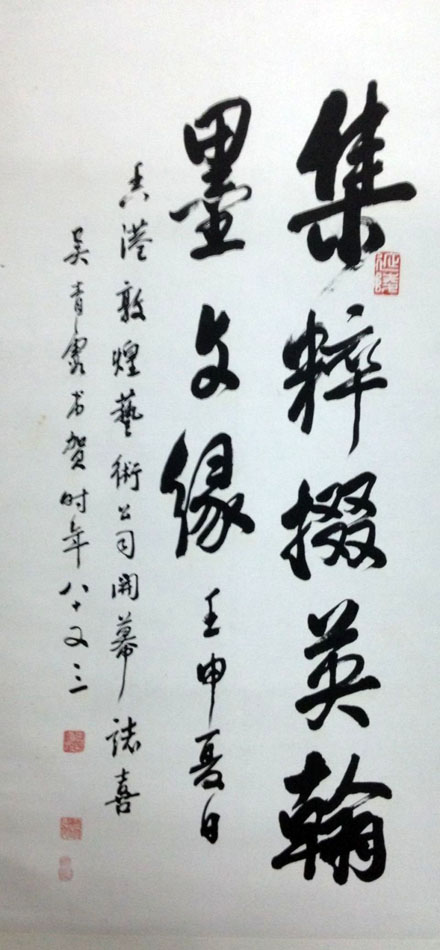 集粹掇英翰
墨文缘壬申夏日
香港敦煌藝術公司開幕誌喜
吴青霞书贺时年八十又三